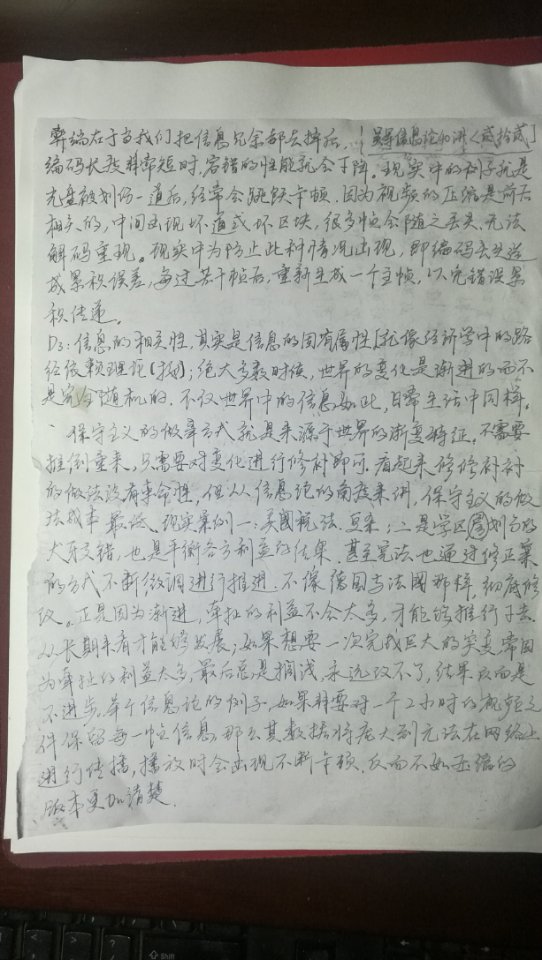 弊端在于当我们把信息冗余都去掉后,[吴军信息论40讲<贰拾贰]
编码长度非常短时,容错的性能就会下降。现实中的例子就是
光盘被划伤一道后,经常会跳跃卡顿,因为视频的压缩是前后
相关的,中间出现坏道或坏区块,很多帧会随之丢失,无法
解码重现。现实中为防止此种情况出现,即编码丢失造
成累积误差,每过若干帧后,重新生成一个主帧,以免错误累
积传递。
D3:信息的相关性,其实是信息的固有属性[就像经济学中的路
径依赖理论];绝大多数时候,世界的变化是渐进的而不
是完全随机的,不仅世界中的信息如此,日常生活中同样。
保守主义的做事方式就是来源于世界的渐变特征。不需要
推倒重来,只需要对变化进行修补即可,看起来修修补补
的做法没有革命性,但从信息论的角度来讲,保守主义的做
法成本最低。现实案例一:美国税法;二是学区划分的
犬牙交错,也是平衡各方利益的结果,甚至宪法也通过修正案
的方式不断微调进行推进,不像德国与法國那样,彻底修
改。正是因为渐进,牵扯的利益不会太多,才能够推行下去
从长期来看才能够发展;如果想要一次完成巨大的突变,常因
为牵扯的利益太多,最后总是搁浅,永远改不了,结果反而是
不进步。举个信息论的例子,如果非要对一个2小时的视频文
件保留每一帧信息,那么其数据将庞大到无法在网络上
进行传播,播放时会出现不断卡顿,反而不如压缩的
版本更加清楚.
Shift